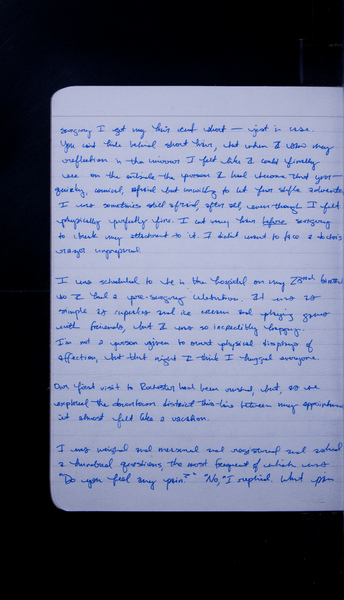 surgery I got my hair cut short — just in case.
You can't hide behind short hair, but when I saw my
reflection in the mirror I felt like I could finally
see on the outside the person I had become that year —
quirky, comical, afraid but unwilling to let fear stifle
I was sometimes still afraid, after all, even though I felt
physically perfectly fine. I cut my hair before surgery
to break my attachment to it. I didn't want to face a doctor's
unprepared.
I was scheduled to be in the hospital on my 23rd
so I had a pre-surgery celebration. It was as
simple as cupcakes and ice cream and playing games
with friends, but I was so incredibly happy.
I'm not a person given to overt physical displays of
affection, but that night I think I hugged everyone.
Our first visit to Rochester had been rushed, but, as we
explored the downtown district this time between my appointments
it almost felt like a vacation.
I was weighed and measured and registered and asked
a hundred questions, the most frequent of which was
"Do you feel any pain?" "No," I replied. What pain